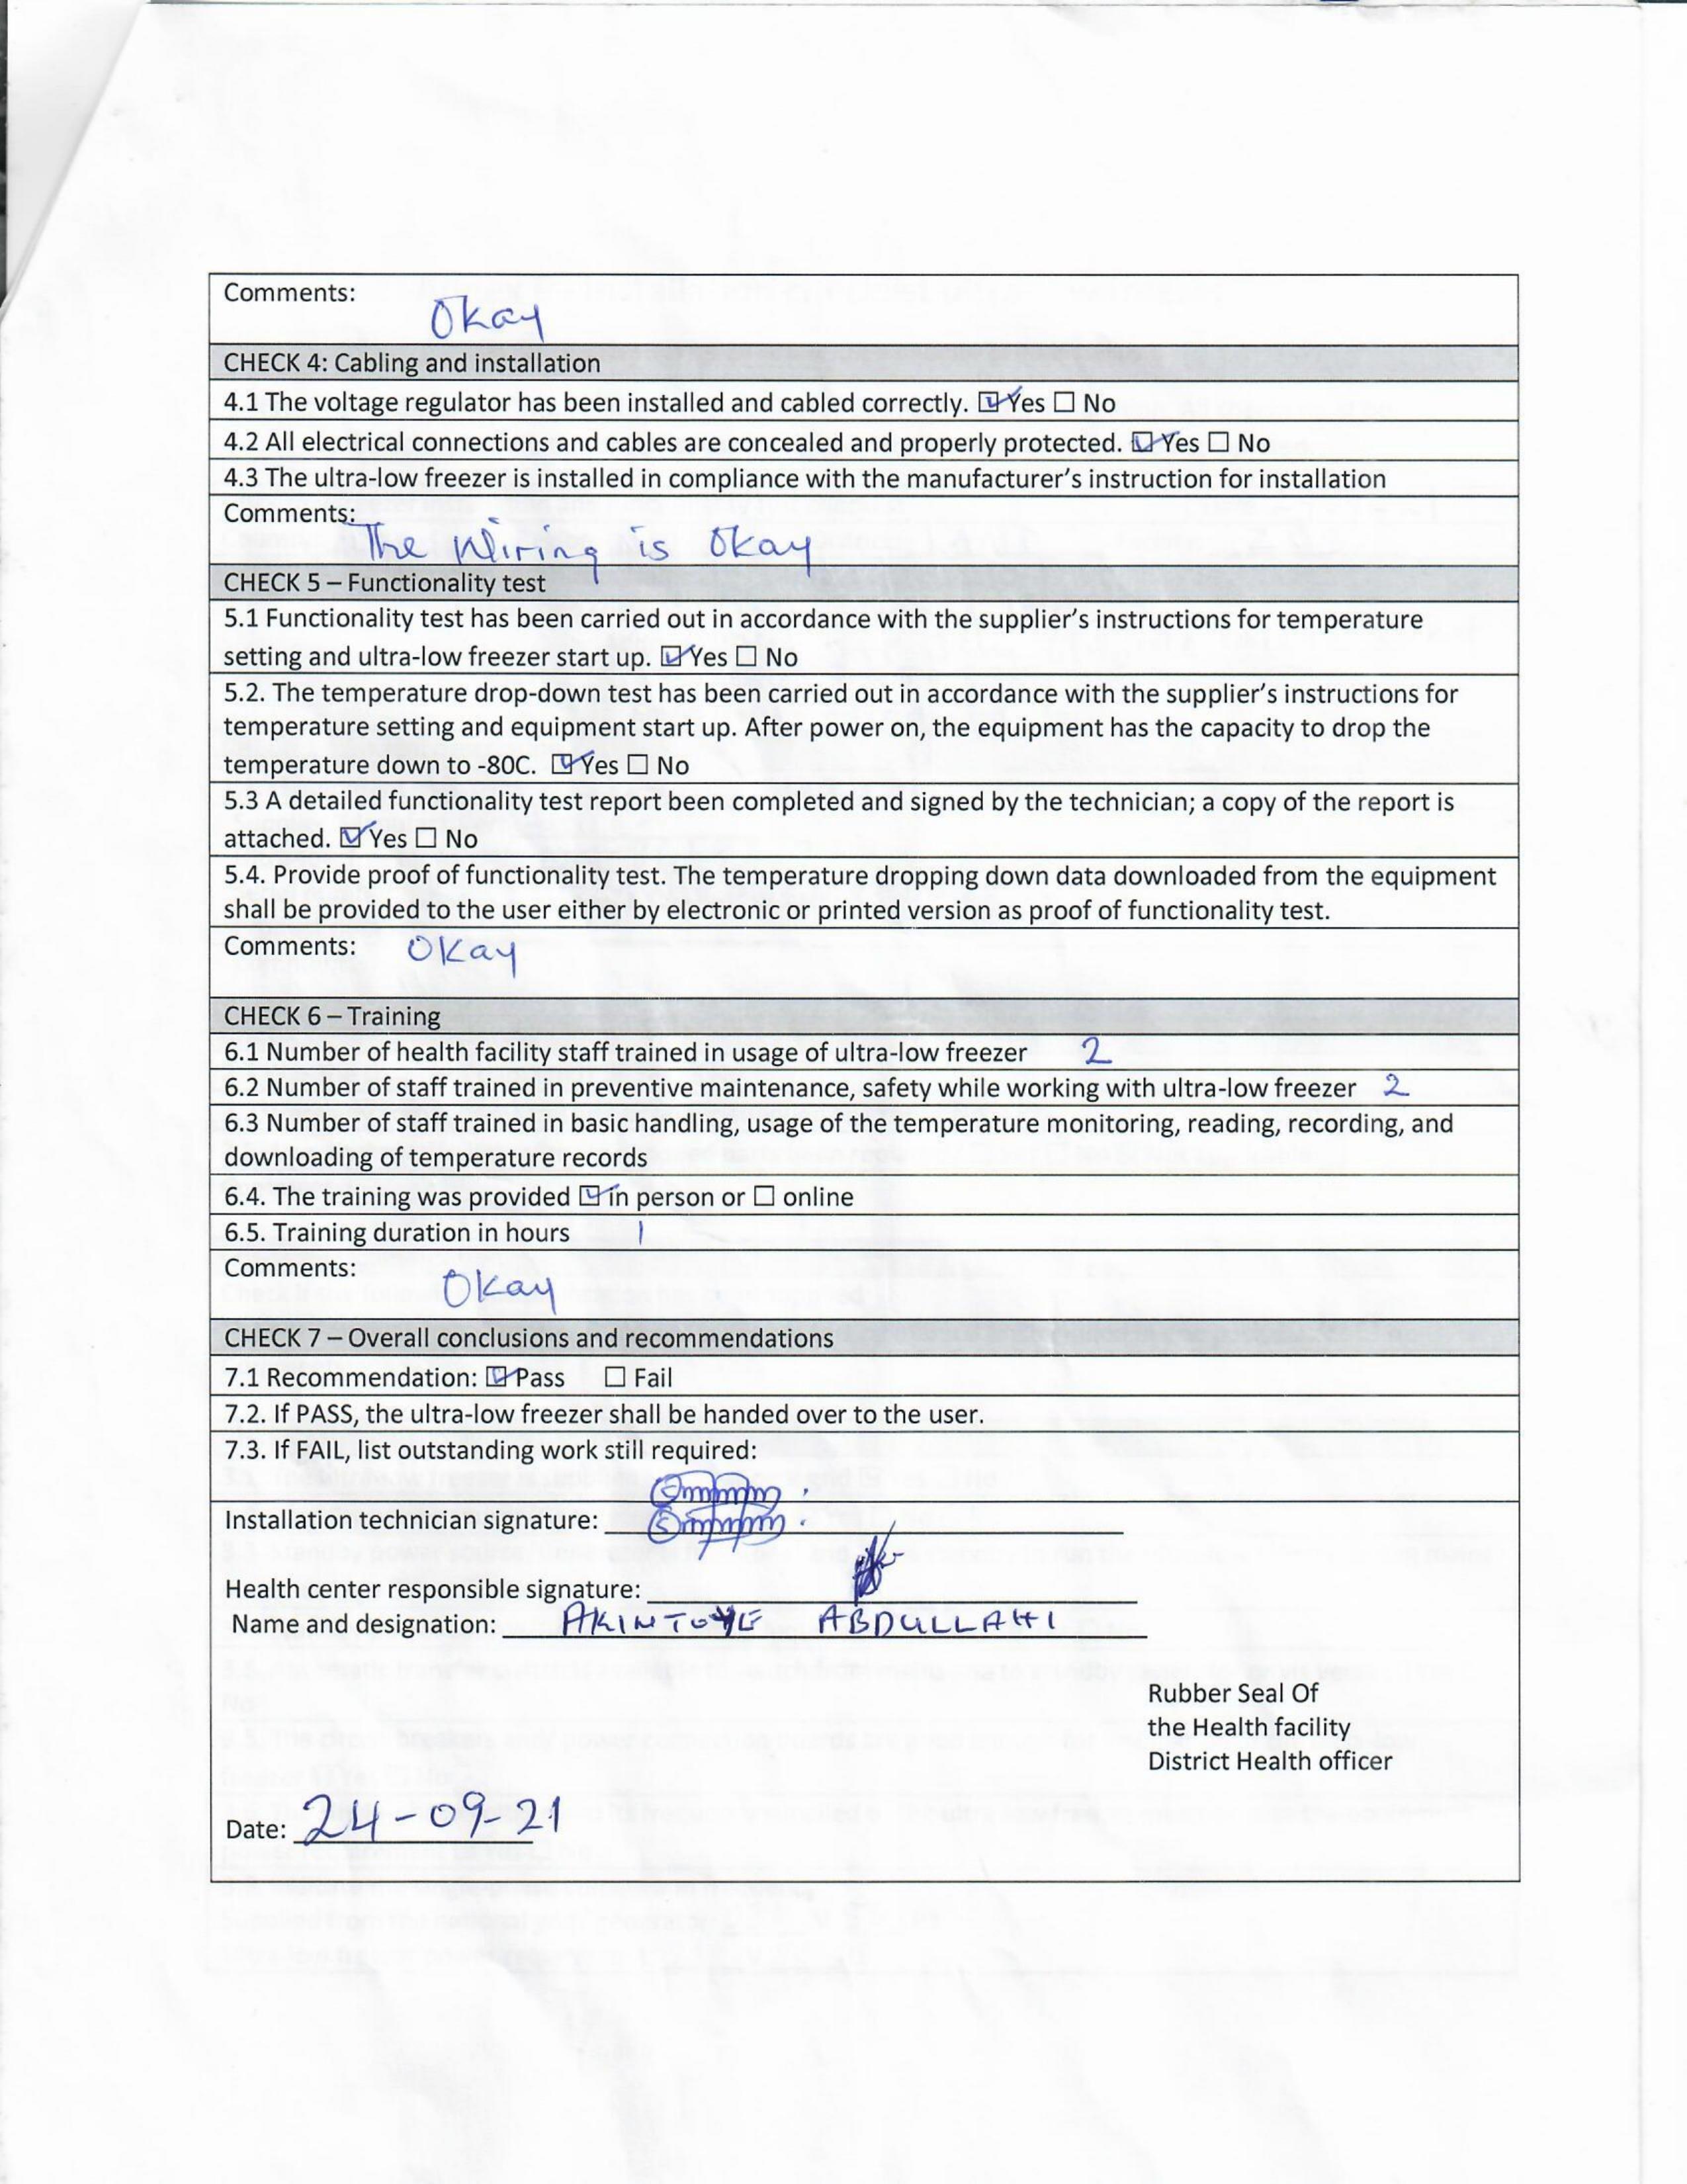 Comments:
Okay
CHECK 4: Cabling and installation
4.1 The voltage regulator has been installed and cabled correctly. ☑ Yes ☐ No
4.2 All electrical connections and cables are concealed and properly protected. ☑ Yes ☐ No
4.3 The ultra-low freezer is installed in compliance with the manufacturer's instruction for installation
Comments:
The Wiring is Okay
CHECK 5 – Functionality test
5.1 Functionality test has been carried out in accordance with the supplier's instructions for temperature
setting and ultra-low freezer start up. ☑ Yes ☐ No
5.2. The temperature drop-down test has been carried out in accordance with the supplier's instructions for
temperature setting and equipment start up. After power on, the equipment has the capacity to drop the
temperature down to -80C. ☑ Yes ☐ No
5.3 A detailed functionality test report been completed and signed by the technician; a copy of the report is
attached. ☑ Yes ☐ No
5.4. Provide proof of functionality test. The temperature dropping down data downloaded from the equipment
shall be provided to the user either by electronic or printed version as proof of functionality test.
Comments: Okay
CHECK 6 – Training
6.1 Number of health facility staff trained in usage of ultra-low freezer 2
6.2 Number of staff trained in preventive maintenance, safety while working with ultra-low freezer 2
6.3 Number of staff trained in basic handling, usage of the temperature monitoring, reading, recording, and
downloading of temperature records
6.4. The training was provided ☑ in person or ☐ online
6.5. Training duration in hours 1
Comments:
Okay
CHECK 7 – Overall conclusions and recommendations
7.1 Recommendation: ☑ Pass ☐ Fail
7.2. If PASS, the ultra-low freezer shall be handed over to the user.
7.3. If FAIL, list outstanding work still required:
Installation technician signature:
Health center responsible signature:
Name and designation: AKINTOYE ABDULLAHI
Rubber Seal Of
the Health facility
District Health officer
Date: 24-09-21